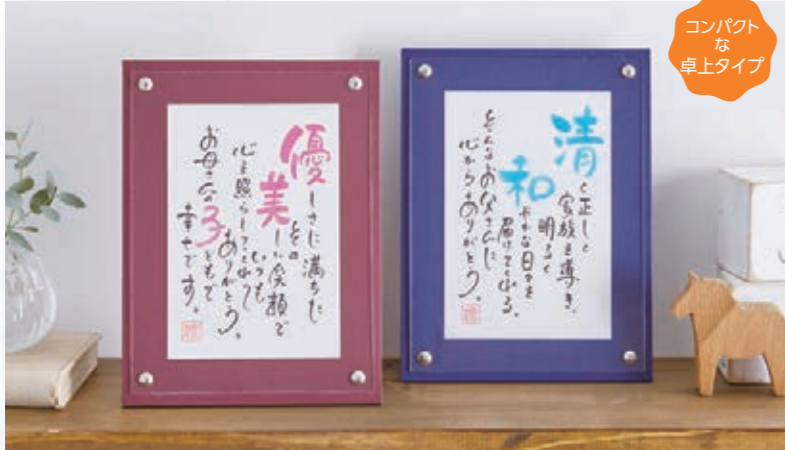 コンパクト
な
卓上タイプ
優しさに満ちた
その
美しい笑顔で
いつも
心を照らしてくれて
ありがとう。
お母さんの子どもで
幸せです。
清く正しく
家族を導き、
明るく
和やかな日々を
届けてくれる。
そんなお父さんに
心からありがとう。